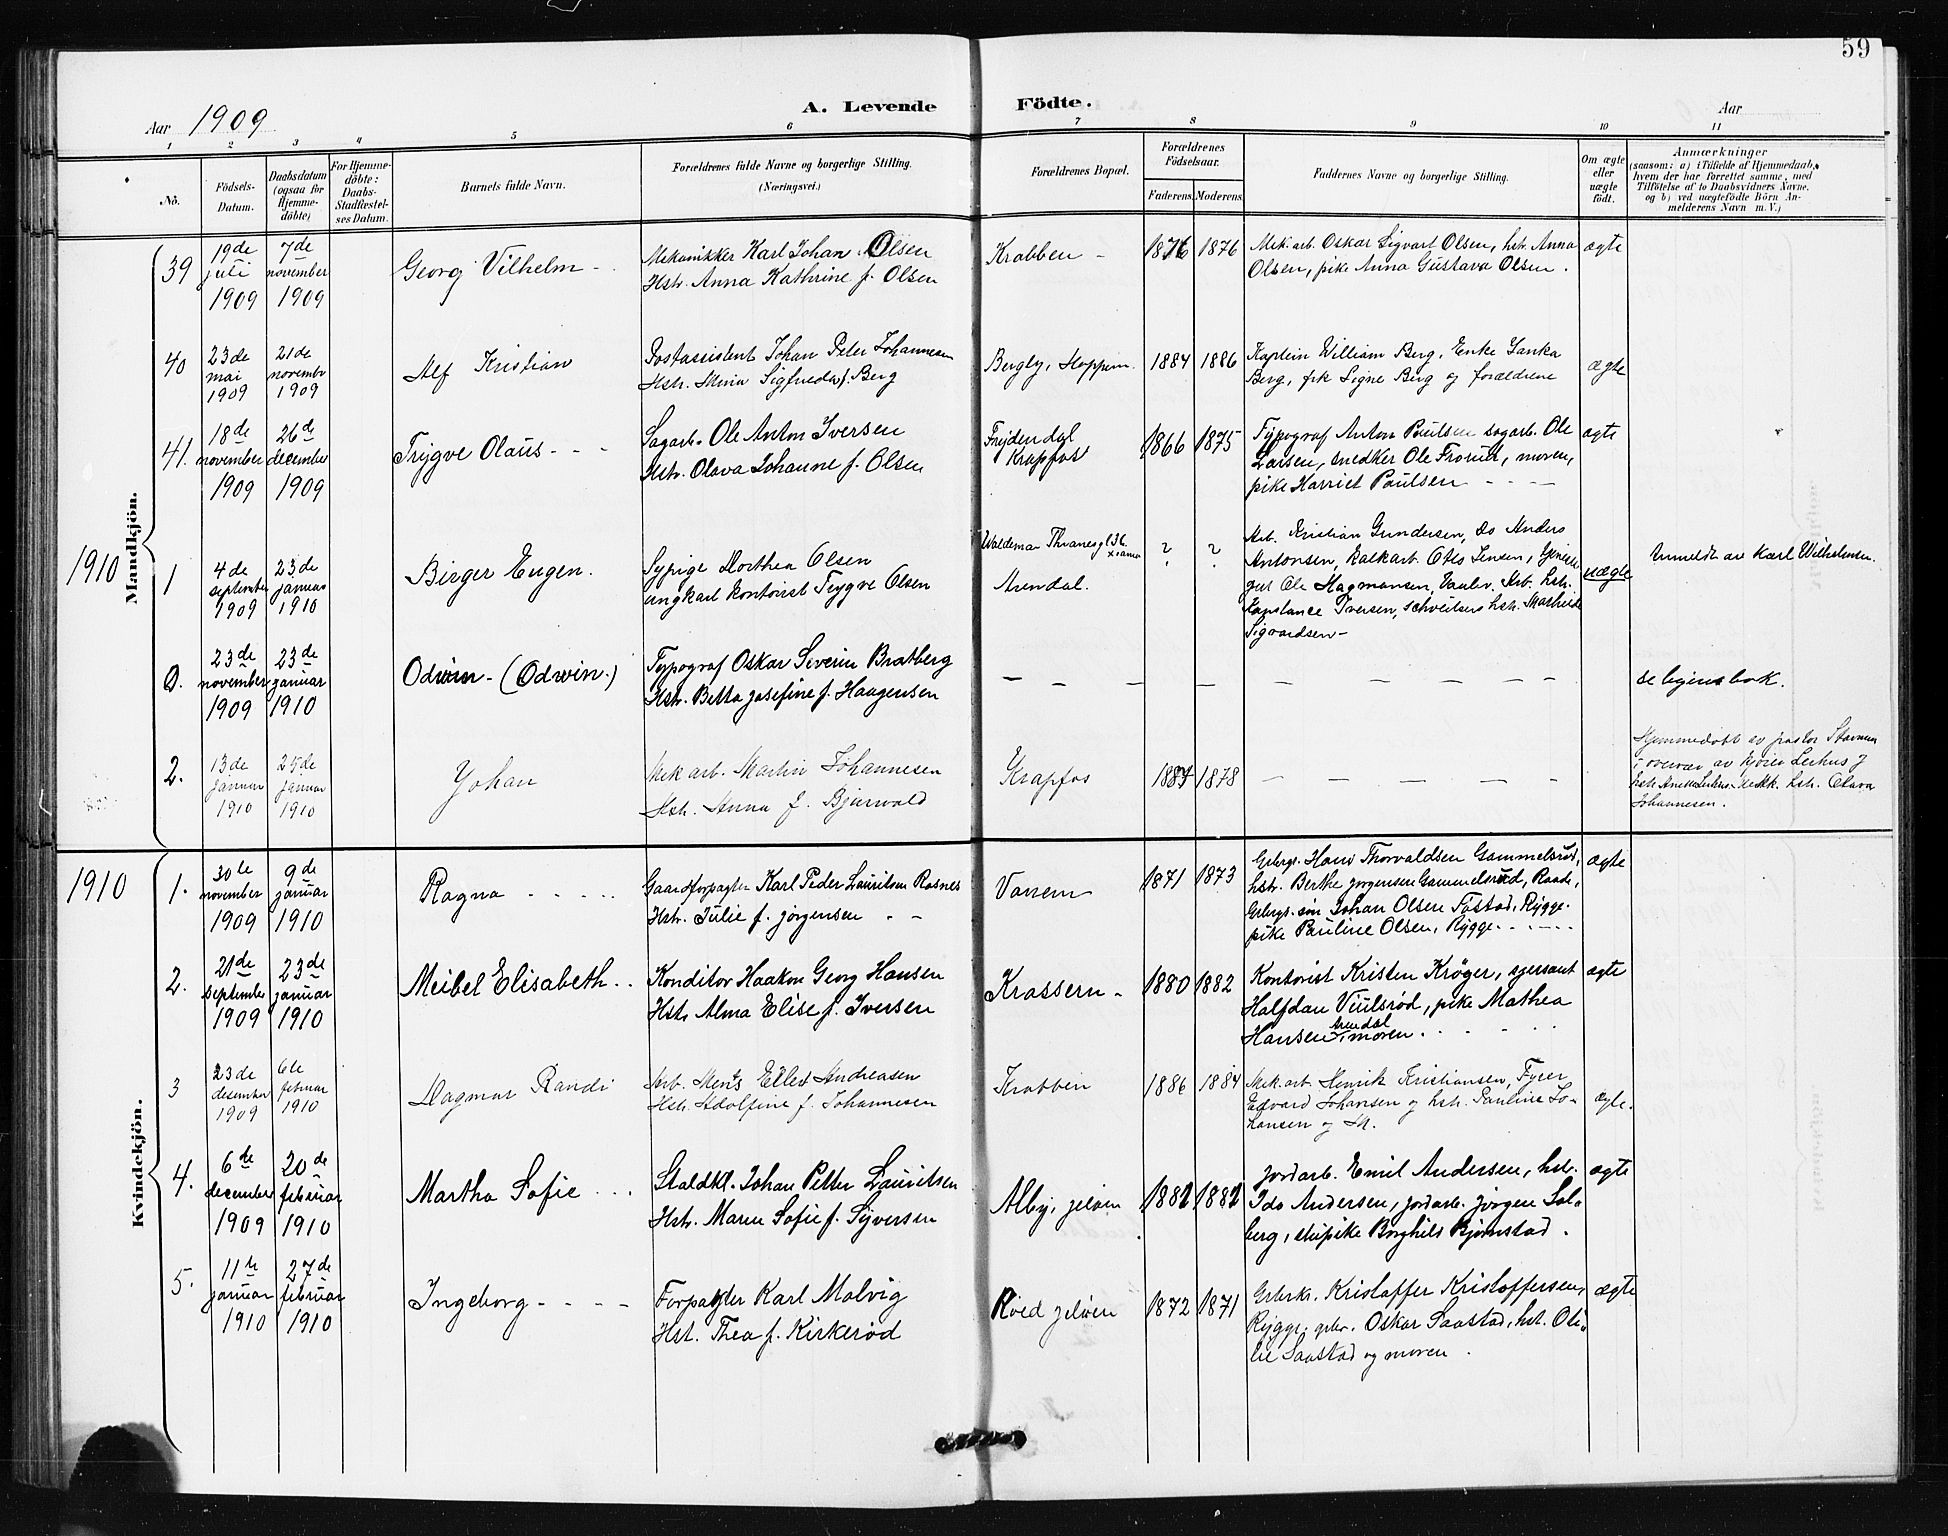 59
Aar 1909
A. Levende Födte.
Aar
1 2 3 4 5 6 7 8 9 10 11
No.
Födsels-
Datum.
Daabsdatum
(ogsaa for
Hjemme-
döbte)
For Hjemme-
döbte:
Daabs-
Stadfæstel-
ses Datum.
Barnets fulde Navn.
Forældrenes fulde Navne og borgerlige Stilling.
(Næringsvei.)
Forældrenes Bopæl.
Forældrenes
Födselsaar.
Faderens. Moderens.
Faddernes Navne og borgerlige Stilling.
Om ægte
eller
uægte
födt.
Anmærkninger
(saasom: a) i Tilfælde af Hjemmedaab,
hvem der har forrettet samme, med
Tilföielse af to Daabsvidners Navne,
og b) ved uægtefödte Börn An-
melderens Navn m. V.)
Mandkjön.
39
19de
juli
1909
7de
november
1909
Georg Vilhelm -
Mekanikker Karl Johan Olsen
Hstr. Anna Kathrine f. Olsen
Krabben -
1876 1876
Mek. arb. Oskar Sigvart Olsen, hstr. Anna
Olsen, pike Anna Gustava Olsen.
ægte
40
23de
mai
1909
21de
novembr
1909
Alf Kristian
Postassistent Johan Peter Johannesen
Hstr. Mina Sigfrida f. Berg
Bergly, Hoppern.
1884 1886
Kaptein William Berg, Enke Janka
Berg, frk Signe Berg og forældrene
ægte
41.
18de
november
1909
26de
december
1909
Trygve Olaus - - -
Sagarb. Ole Anton Iversen
Hstr. Olava Johanne f. Olsen
Frydendal
Krapfos
1866 1875
Typograf Anton Paulsen sagarb. Ole
Larsen, snedker Ole Frorud, moren,
pike Harriet Paulsen - - - -
ægte
1910
1
4de
september
1909
23de
januar
1910
Birger Eugen.
Sypige Dorthea Olsen
ungkarl kontorist Trygve Olsen
Waldemar Thranesgt 36
Arendal.
? ?
Arb. Kristian Gundersen, do Anders
Antonsen, kalkarb. Otto Jensen,
gut Ole Hagmansen, Arb. hstr.
Iversen, hstr. Mathilde
Sigvardsen -
uægte
Anmeldt av Karl Wilhelmsen
0.
23de
november
1909
23de
januar
1910
Odwin - (Odwin.)
Typograf Oskar Severin Bratberg
Hstr. Betta Josefine f. Haagensen
- - - - - - - - - -
se byens bok.
2.
13de
januar
1910
25de
januar
1910
Johan
Mek arb. Martin Johannesen
Hstr. Anna f. Bjurwald
Krapfos
1884 1878
- - - - - -
Hjemmedøbt av pastor
i overvær av
hstr. Olava
Johannesen.
Kvindekjön.
1910
1.
30te
november
1909
9de
januar
1910
Ragna - - - - -
Gaardforpagter Karl Peder Lauritsen Rosnes
Hstr. Julie f. Jørgensen - -
Vanem
1871 1873
Grbrgs. Hans Thorvaldsen Gammelsrød,
hstr. Berthe Jørgensen Gammelsrød, Raade,
Grbrgs. søn Johan Olsen Tøstad, Rygge.
pike Pauline Olsen, Rygge. - . - . -
ægte
2.
21de
september
1909
23de
januar
1910
Meibel Elisabeth - .
Konditor Haakon Georg Hansen
Hstr Alma Elise f. Iversen
Krossern -
1880 1882
Kontorist Kristen Krøger, sjersant
Halfdan Vuulsrød, pike Mathea
Hansen Arendal, moren. . . . .
ægte
3
23de
desember
1909
6te
februar
1910
Dagmar Randi
Arb. Ments Eilert Andreasen
Hstr. Adolfine f. Johannesen
Krabben
1886 1884
Mek arb. Henrik Kristiansen, Fyrer
Edvard Johansen og hstr. Pauline Jo-
hansen og M.
ægte.
4.
6de
december
1909
20de
februar
1910
Martha Sofie . . .
Staldkl. Johan Petter Lauritsen
Hstr. Maren Sofie f. Syversen
Alby, jeløen
1882 1882
Jordarb. Emil Andersen, hstr.
Ida Andersen, jordarb. Jørgen Sol-
berg, stupike Borghild Bjørnstad.
ægte
5.
11te
januar
1910
27de
februar
1910
Ingeborg - - - -
Forpagter Karl Molvig
Hst. Thea f. Kirkerød
Røed jeløen
1872 1871
Grbrkr. Kristoffer Kristoffersen,
Rygge, grbr. Oskar Saastad, hst. Oti-
lie Saastad og moren .
ægte